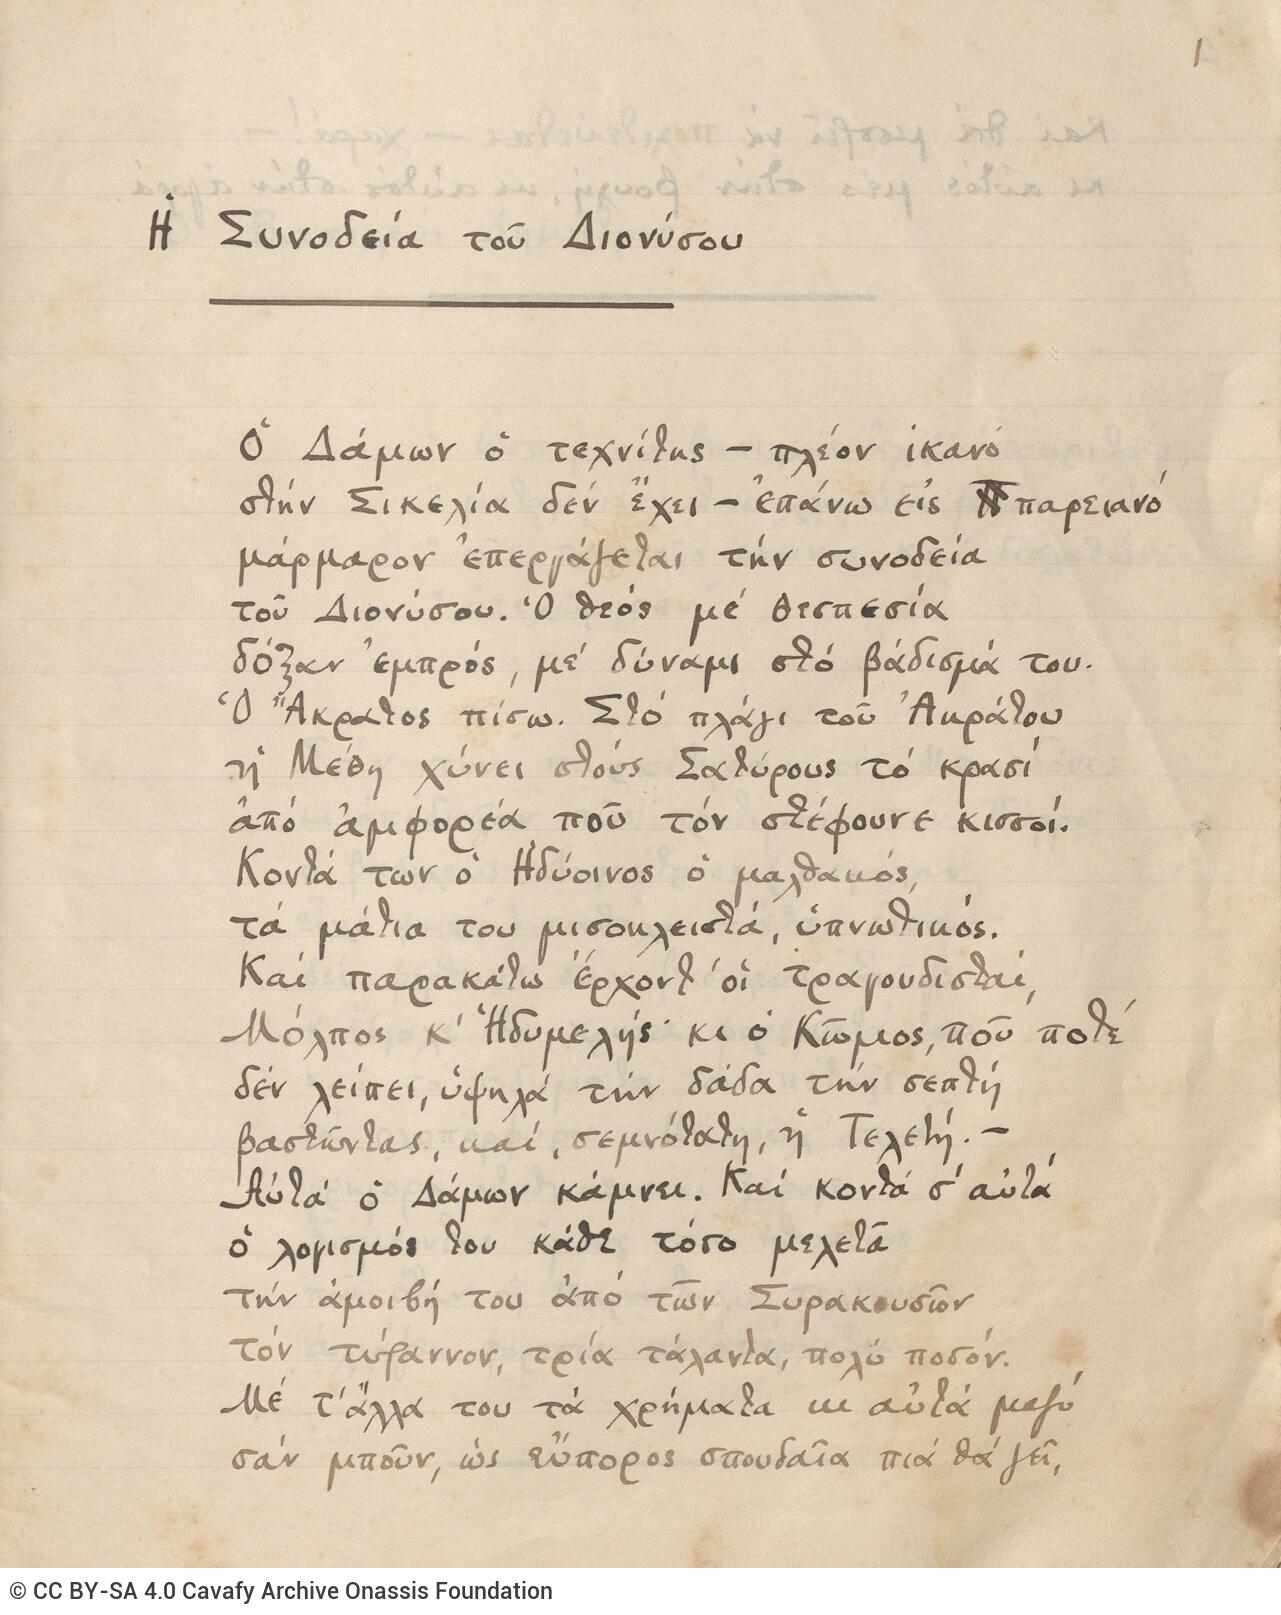 1
Ἡ Συνοδεία τοῦ Διονύσου
Ὁ Δάμων ὁ τεχνίτης – πλέον ἱκανό
στήν Σικελία δέν ἔχει – ἐπάνω εἰς παρειανό
μάρμαρον ἐπεργάζεται τήν συνοδεία
τοῦ Διονύσου. Ὁ θεός μέ θεσπεσία
δόξαν ἐμπρός, μέ δύναμι στό βάδισμά του.
Ὁ Ἄκρατος πίσω. Στό πλάγι τοῦ Ἀκράτου
ἡ Μέθη χύνει στούς Σατύρους τό κρασί
ἀπό ἀμφορέα ποῦ τόν στέφουνε κισσοί.
Κοντά των ὁ Ἡδύοινος ὁ μαλθακός,
τά μάτια του μισοκλειστά, ὑπνωτικός.
Καί παρακάτω ἔρχοντ' οἱ τραγουδισταί,
Μόλπος κ' Ἡδυμελής· κι ὁ Κῶμος, ποῦ ποτέ
δέν λείπει, ὑψηλά τήν δάδα τήν σεπτή
βαστῶντας, καί, σεμνότατη, ἡ Τελετή. –
Αὐτά ὁ Δάμων κάμνει. Καί κοντά σ' αὐτά
ὁ λογισμός του κάθε τόσο μελετᾶ
τήν ἀμοιβή του ἀπό τῶν Συρακουσῶν
τόν τύραννον, τρία τάλαντα, πολύ ποσόν.
Μέ τ' ἄλλα του τά χρήματα κι αὐτά μαζύ
σάν μποῦν, ὡς εὔπορος σπουδαῖα πιά θά ζεῖ,
© CC BY-SA 4.0 Cavafy Archive Onassis Foundation